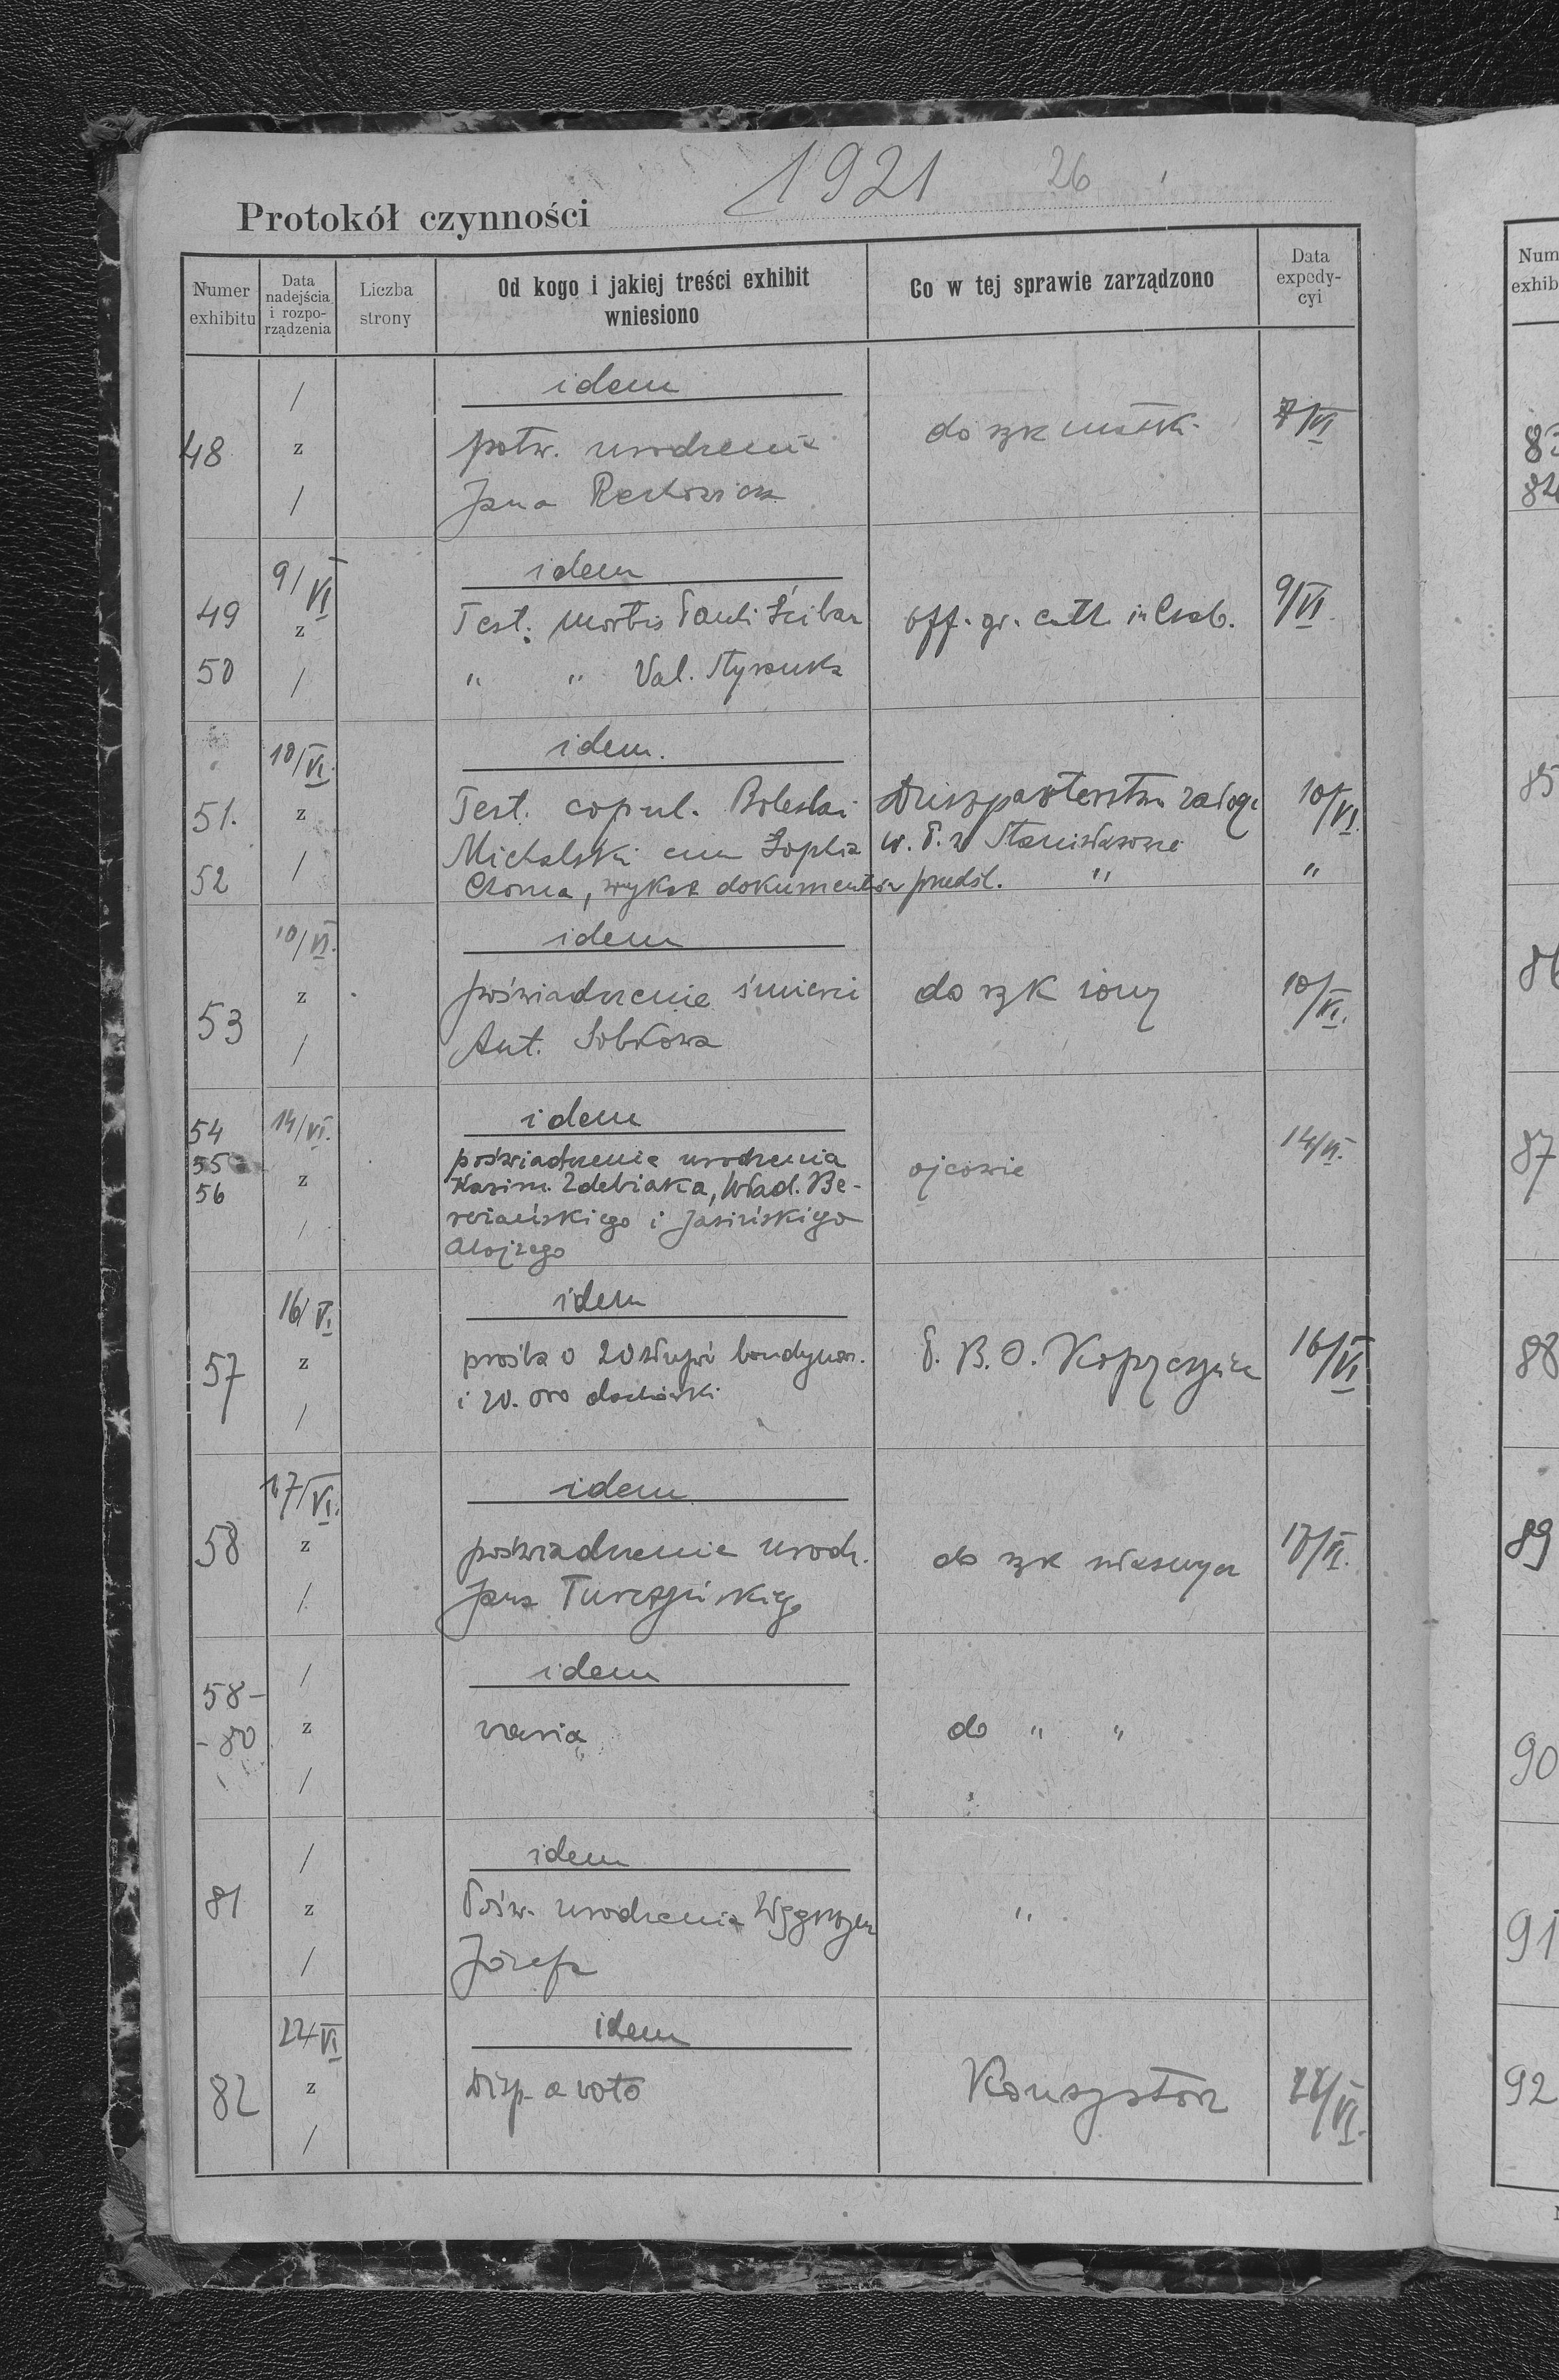 1921
26
Protokół czynności
Numer exhibitu
Data nadejścia i rozporządzenia
Liczba strony
Od kogo i jakiej treści exhibit wniesiono
Co w tej sprawie zarządzono
Data expedycyi
/ idem
48 z potw. urodzenia do rąk matki 7/VI
/ Jana
9/VI idem
49 z Test. mortis Pauli off. gr. cath. in 9/VI
50 / " " Val.
10/VI. idem.
51. z Test. copul. Boleslai Duszpasterstwo załogi 10/VI.
/ Michalski cum Zophia w. P. w Stanisławowie
52 Choma, wykaz dokumentów przedśl. " "
10/VI. idem
z poświadczenie śmierci do rąk żony 10/VI.
53 / Ant. Sobkowa
54 14/VI. idem 14/VI.
55 poświadczenie urodzenia ojcowie
56 z Kazim. Zdebiaka, Wład. Be-
reziańskiego i Jasińskiego
/ Alojzego
16/VI. idem
57 z prośba o 20 budynk. P. B. O. Kopyczyńce 16/VI
/ i 20.000 dachówki
17/VI. idem
58 z poświadczenie urodz. do rąk własnych 17/VI.
/ Jana Turczyńskiego
/ idem
58-
-80 z varia do " "
/
/ idem
81 z Pośw. urodzenia Węgrzyn "
/ Józefa
22/VI idem
82 z Disp. a voto Konsystorz 22/VI.
/
Num
exhib
83
84
85
86
87
88
89
90
91
92